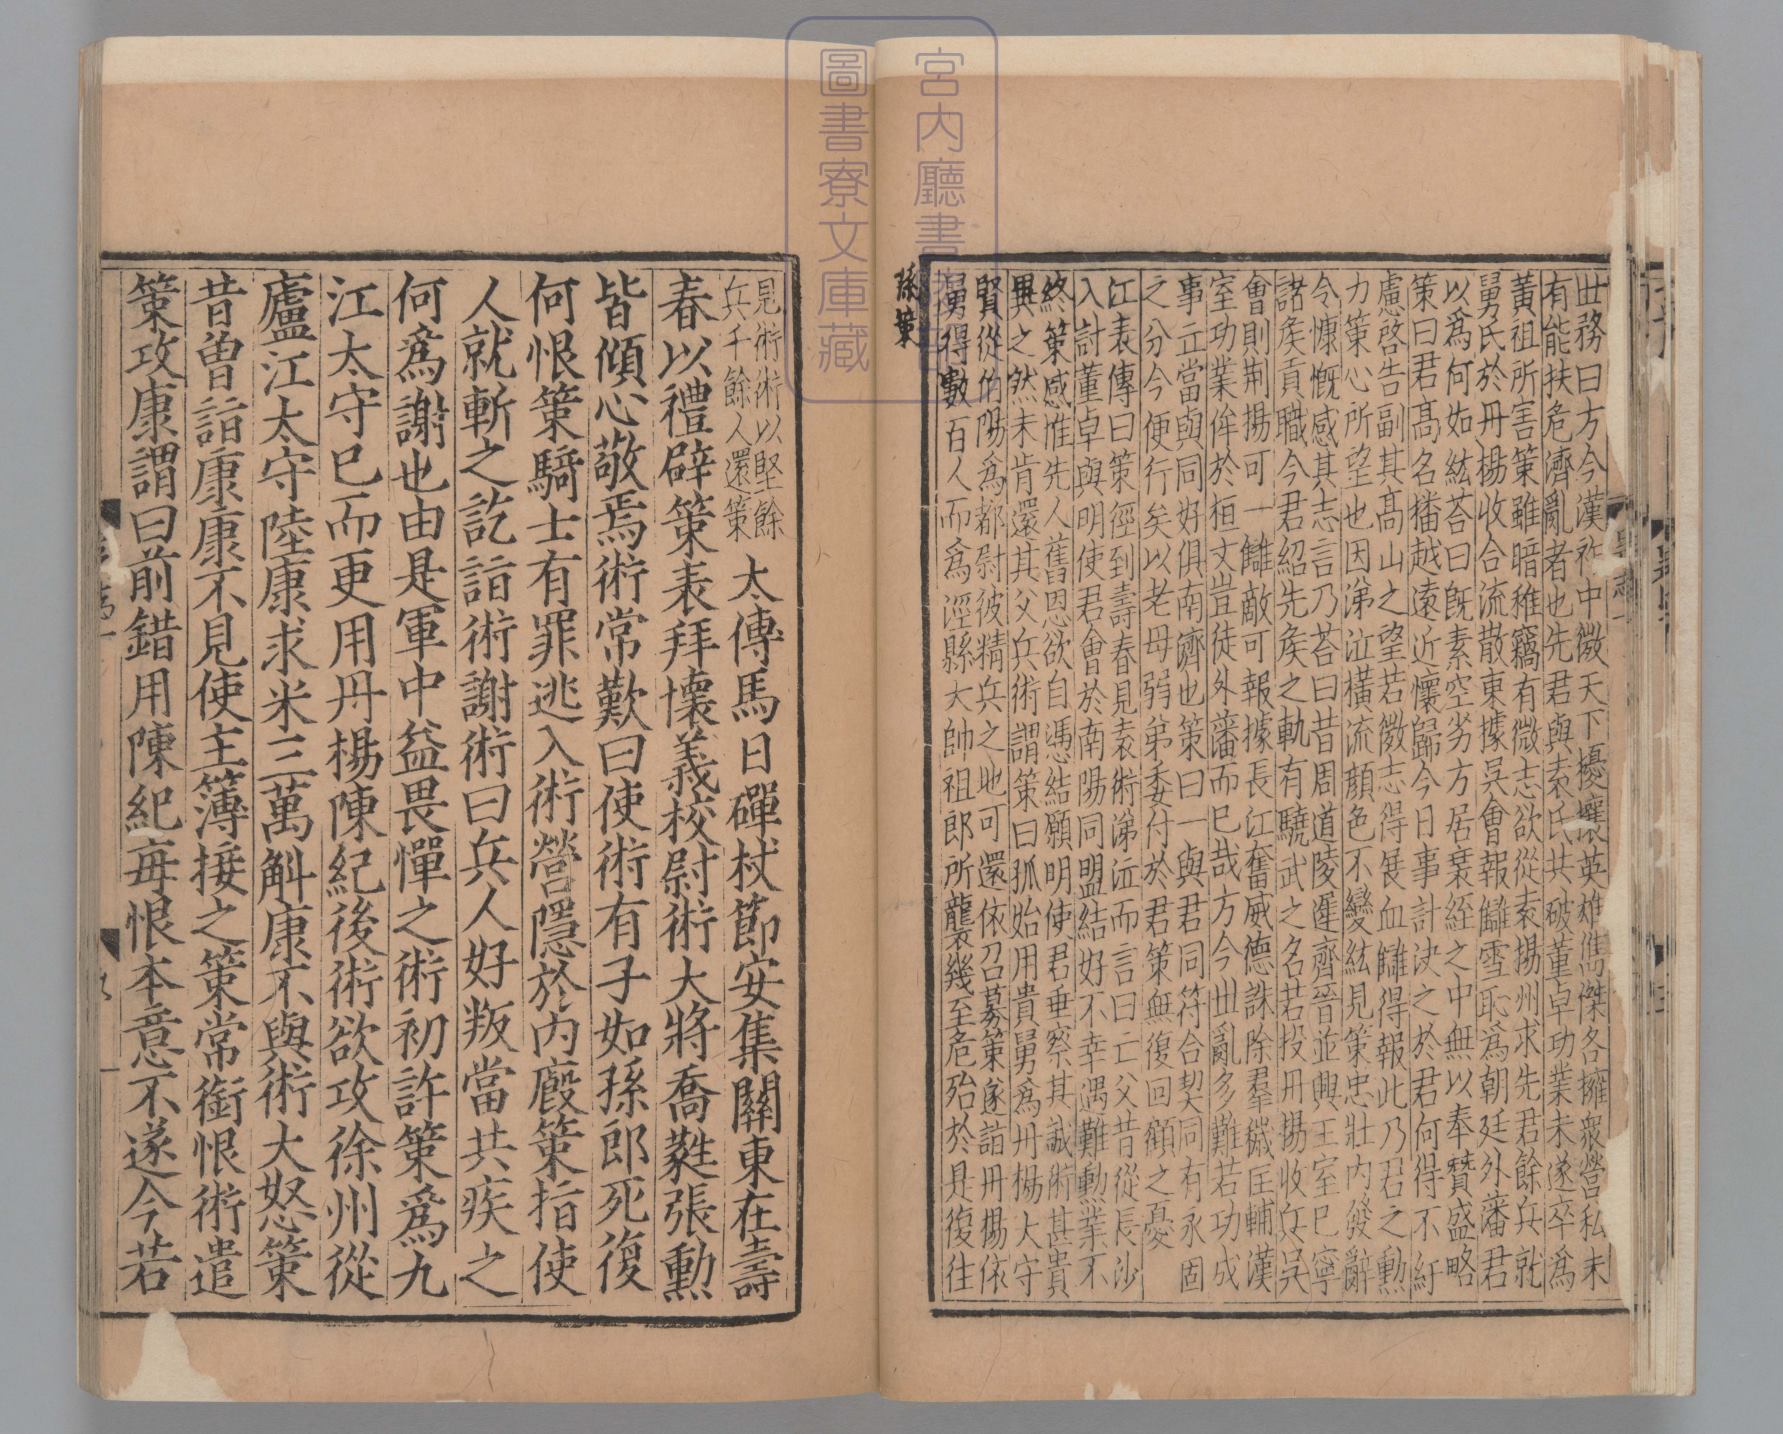 世務曰方今漢祚中微天下擾攘英雄儁傑各擁衆營私未
有能扶危濟亂者也先君與袁氏共破董卓功業未遂卒爲
黃祖所害策雖暗稚竊有微志欲從袁揚州求先君餘兵就
舅氏於丹楊收合流散東據吳會報讎雪恥爲朝廷外藩君
以爲何如紘荅曰旣素空劣方居衰絰之中無以奉贊盛略
策曰君髙名播越遠近懷歸今日事計決之於君何得不紆
慮啓告副其髙山之望若微志得展血讎得報此乃君之勳
力策心所望也因涕泣橫流顔色不變紘見策忠壯内發辭
令慷慨感其志言乃荅曰昔周道陵遲齊晉並興王室已寧
諸矦貢職今君紹先矦之軌有驍武之名若投丹楊收兵吳
會則荆揚可一讎敵可報據長江奮威德誅除羣穢匡輔漢
室功業侔於桓文豈徒外藩而已哉方今世亂多難若功成
事立當與同好俱南濟也策曰一與君同符合契同有永固
之分今便行矣以老母弱弟委付於君策無復回顧之憂
江表傳曰策徑到壽春見袁術涕泣而言曰亡父昔從長沙
入討董卓與明使君會於南陽同盟結好不幸遇難勳業不
終策感惟先人舊恩欲自馮結願明使君垂察其誠術甚貴
異之然未肯還其父兵術謂策曰孤始用貴舅爲丹楊太守
賢從伯陽爲都尉彼精兵之地可還依召募策遂詣丹楊依
舅得數百人而爲涇縣大帥祖郎所襲幾至危殆於是復往
孫策
見術術以堅餘
兵千餘人還策
太傅馬日磾杖節安集關東在壽
春以禮辟策表拜懷義校尉術大將喬蕤張勳
皆傾心敬焉術常歎曰使術有子如孫郎死復
何恨策騎士有罪逃入術營隱於内廐策指使
人就斬之訖詣術謝術曰兵人好叛當共疾之
何爲謝也由是軍中益畏憚之術初許策爲九
江太守已而更用丹楊陳紀後術欲攻徐州從
廬江太守陸康求米三萬斛康不與術大怒策
昔曾詣康康不見使主簿接之策常銜恨術遣
策攻康謂曰前錯用陳紀每恨本意不遂今若
宮内廳書陵部
圖書寮文庫藏